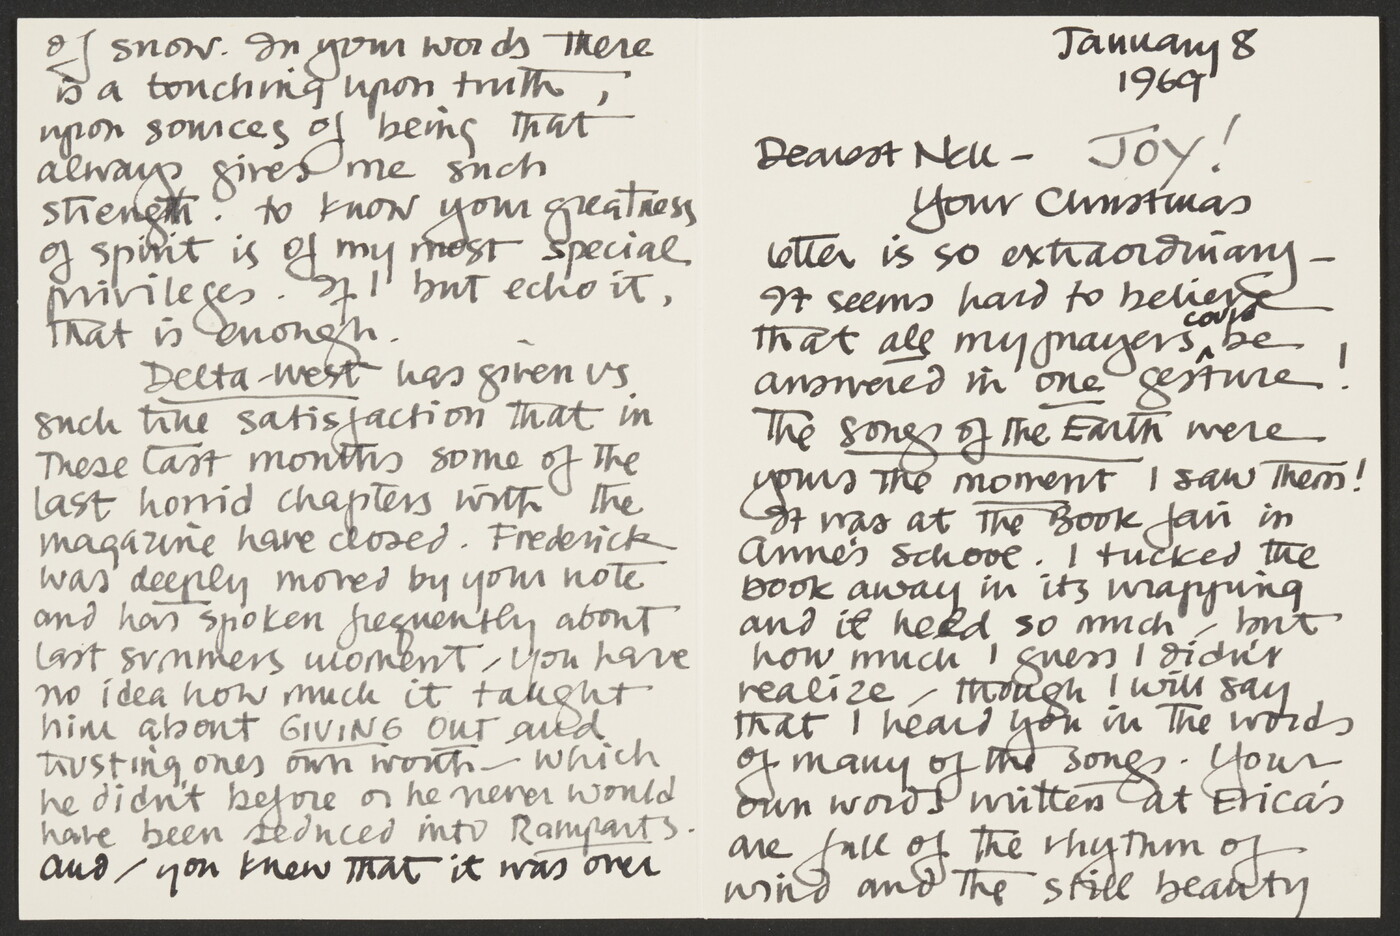 January 8
1969
Dearest Nell - Joy!
Your Christmas
letter is so extraordinary -
It seems hard to believe
that all my prayers could be
answered in one gesture!
The Songs of the Earth were
yours the moment I saw them!
It was at the Book fair in
Anne's school. I tucked the
book away in its wrapping
and it held so much - but
how much I guess I didn't
realize - though I will say
that I heard you in the words
of many of the songs. Your
own words written at Erica's
are full of the rhythm of
wind and the still beauty
of snow. In your words there
is a touching upon truth,
upon sources of being that
always gives me such
strength. to know your greatness
of spirit is of my most special
privileges. If I but echo it,
that is enough.
Delta-West has given us
such true satisfaction that in
these last months some of the
last horrid chapters with the
magazine have closed. Frederick
was deeply moved by your note
and has spoken frequently about
last summers moment - you have
no idea how much it taught
him about GIVING OUT and
trusting ones own worth - which
he didn't before or he never would
have been seduced into Ramparts.
And - you knew that it was over